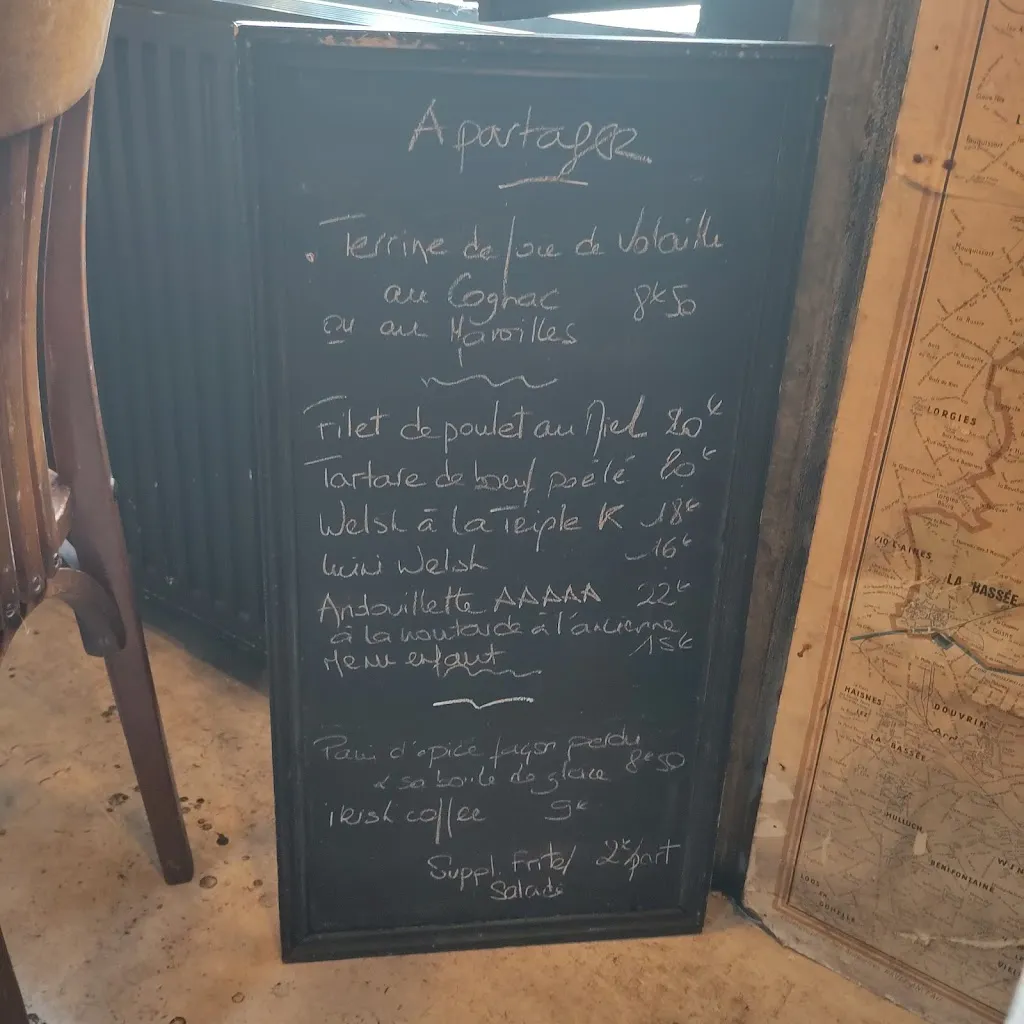 A partager
Terrine de foie de Volaille
au Cognac 8€50
ou au Maroilles
Filet de poulet au Miel 20€
Tartare de boeuf poêlé 20€
Welsh à la Triple K 18€
Mini Welsh 16€
Andouillette AAAAA 22€
à la moutarde à l'ancienne
Menu enfant 15€
Pain d'épice façon perdu
& sa boule de glace 8€50
irish coffee 9€
Suppl. Frite/ 2€/part
Salade
LORGIES
VIOLAINES
LA BASSÉE
HAISNES
DOUVRIN
LA BASSÉE
HULLUCH
BENIFONTAINE
WIN
LOOS EN
GOHELLE